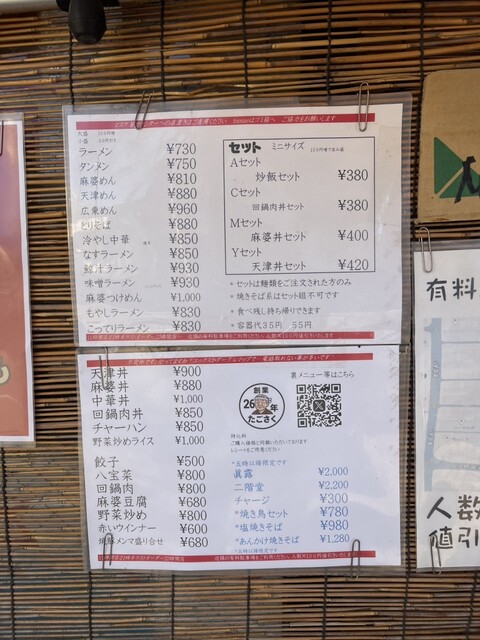 大盛 100円増
ラーメン ¥730
タンメン ¥750
麻婆めん ¥810
天津めん ¥880
広東めん ¥960
とりそば ¥880
冷やし中華 ¥850
なすラーメン ¥850
ラーメン ¥930
味噌ラーメン ¥930
麻婆つけめん ¥1,000
もやしラーメン ¥830
こってりラーメン ¥830
セット ミニサイズ
Aセット
炒飯セット ¥380
Cセット
回鍋肉丼セット ¥380
Mセット
麻婆丼セット ¥400
Yセット
天津丼セット ¥420
*セットは麺類をご注文された方のみ
*焼きそば系はセット組不可です
*食べ残し持ち帰りできます
*容器代35円 55円
天津丼 ¥900
麻婆丼 ¥880
中華丼 ¥1,000
回鍋肉丼 ¥850
チャーハン ¥850
野菜炒めライス ¥1,000
餃子 ¥500
八宝菜 ¥800
回鍋肉 ¥800
麻婆豆腐 ¥680
野菜炒め ¥800
赤いウインナー ¥600
焼豚メンマ盛り合せ ¥680
裏メニュー等はこちら
創業
26年
たこさく
*五時以降限定です
眞露 ¥2,000
二階堂 ¥2,200
チャージ ¥300
*焼き鳥セット ¥790
*塩焼きそば ¥980
*あんかけ焼きそば ¥1,280
*五時以降限定です
有料
人数
値引